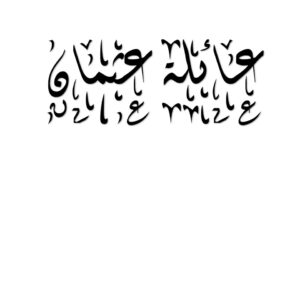 عائلة عثمان